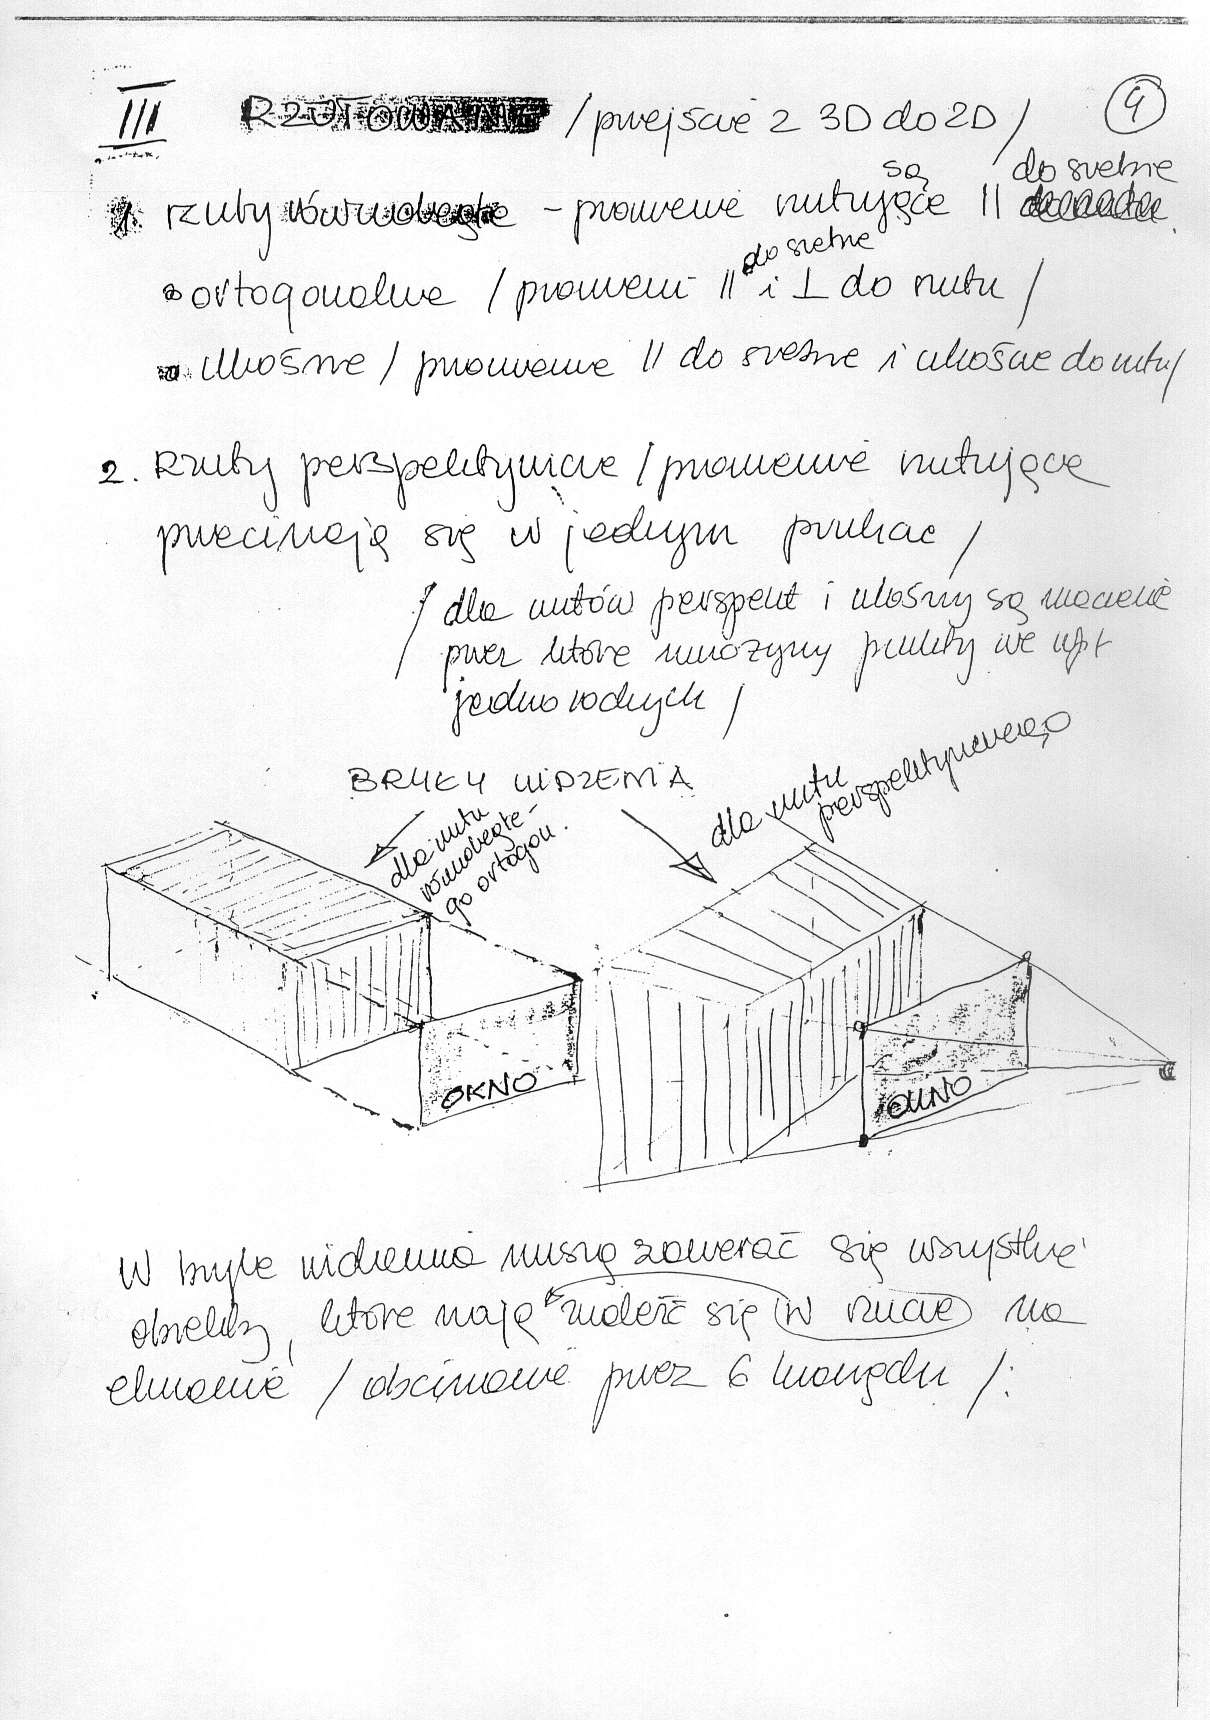 III RZUTOWANIE /przejście z 3D do 2D/ 9
1. rzuty równoległe – promienie rzutujące są || do siebie
• ortogonalne /promienie || do siebie i ⊥ do rzutu/
• ukośne /promienie || do siebie i ukośne do rzutu/
2. Rzuty perspektywiczne /promienie rzutujące
przecinają się w jednym punkcie/
/dla rzutów perspekt i ukośnych są macierze
przez które mnożymy punkty we wsp
jednorodnych/
BRYŁY WIDZENIA
dla rzutu
równoległe-
go ortogon.
dla rzutu
perspektywicznego
OKNO
OKNO
W bryle widzenia muszą zawierać się wszystkie
obiekty, które mają znaleźć się w rzucie na
ekranie /obcinanie przez 6 krawędzi/: